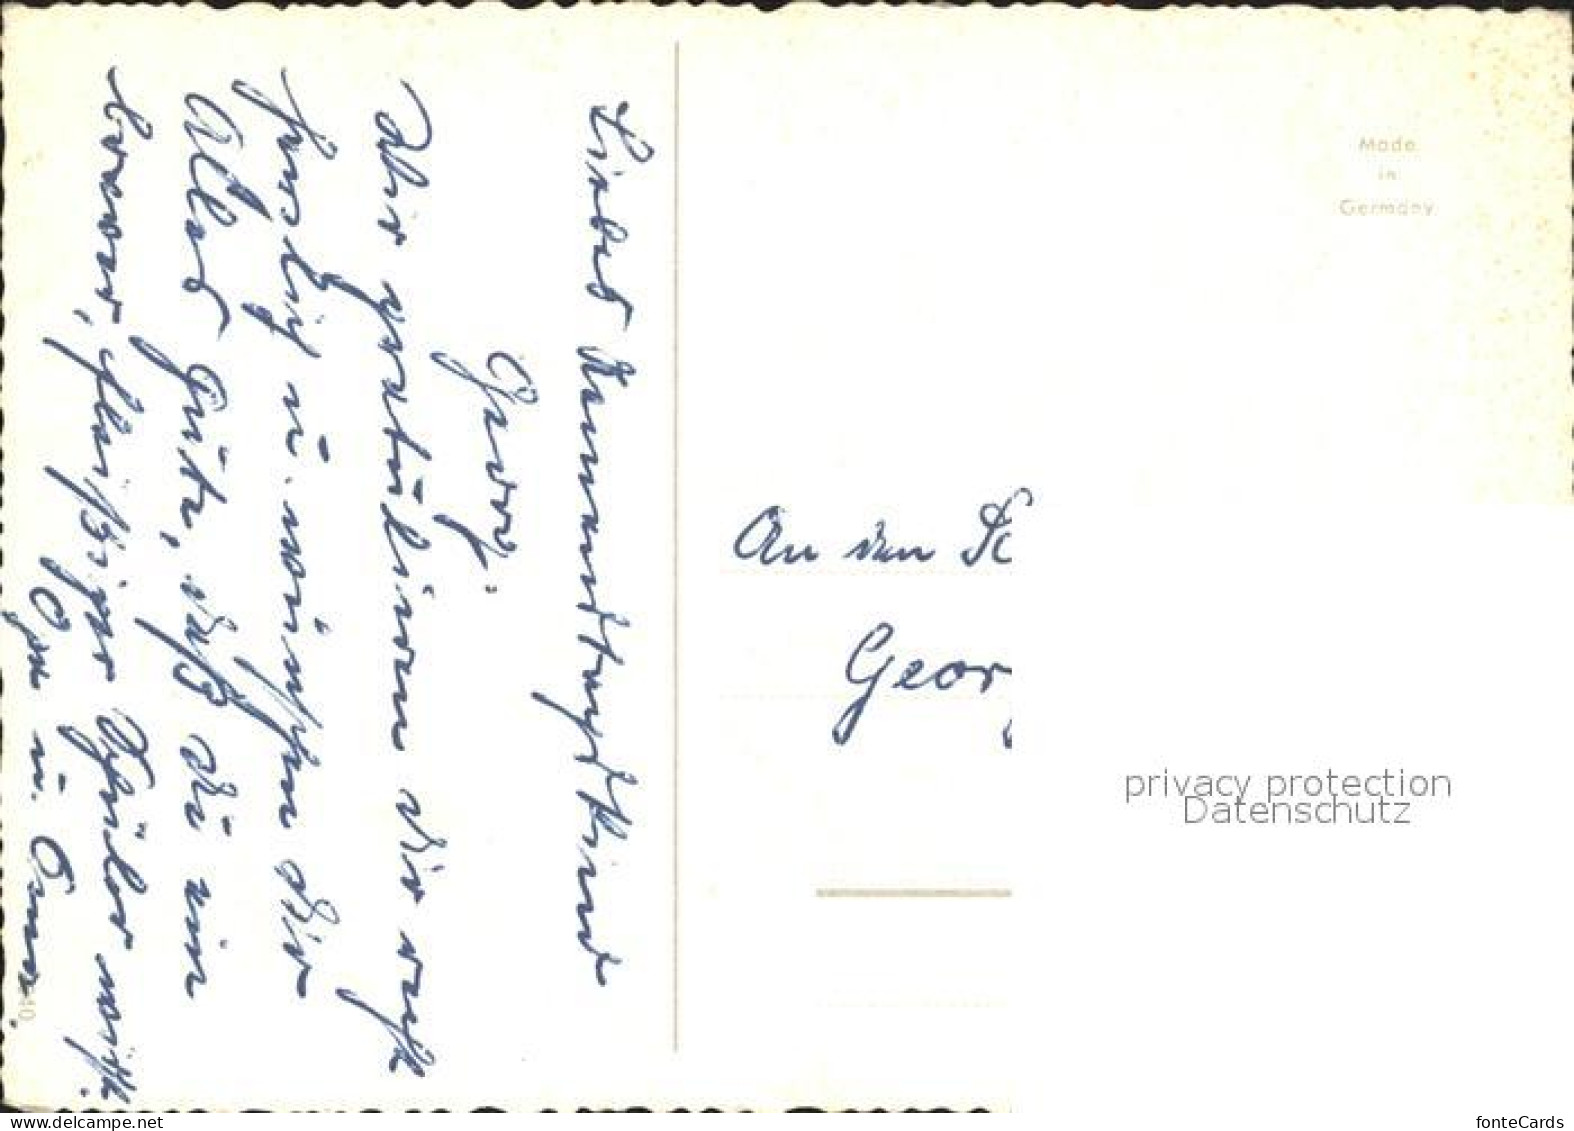 Liebes Kommuntongskind
Georg.
Wir gratulieren dir recht
herzlich u. wünschen dir
Alles Gute, daß du ein
braver, fleißiger Schüler wirst.
Opa u. Oma.
An den Sc
Georg
Made
in
Germany
privacy protection
Datenschutz
www.delcampe.net
fonteCards